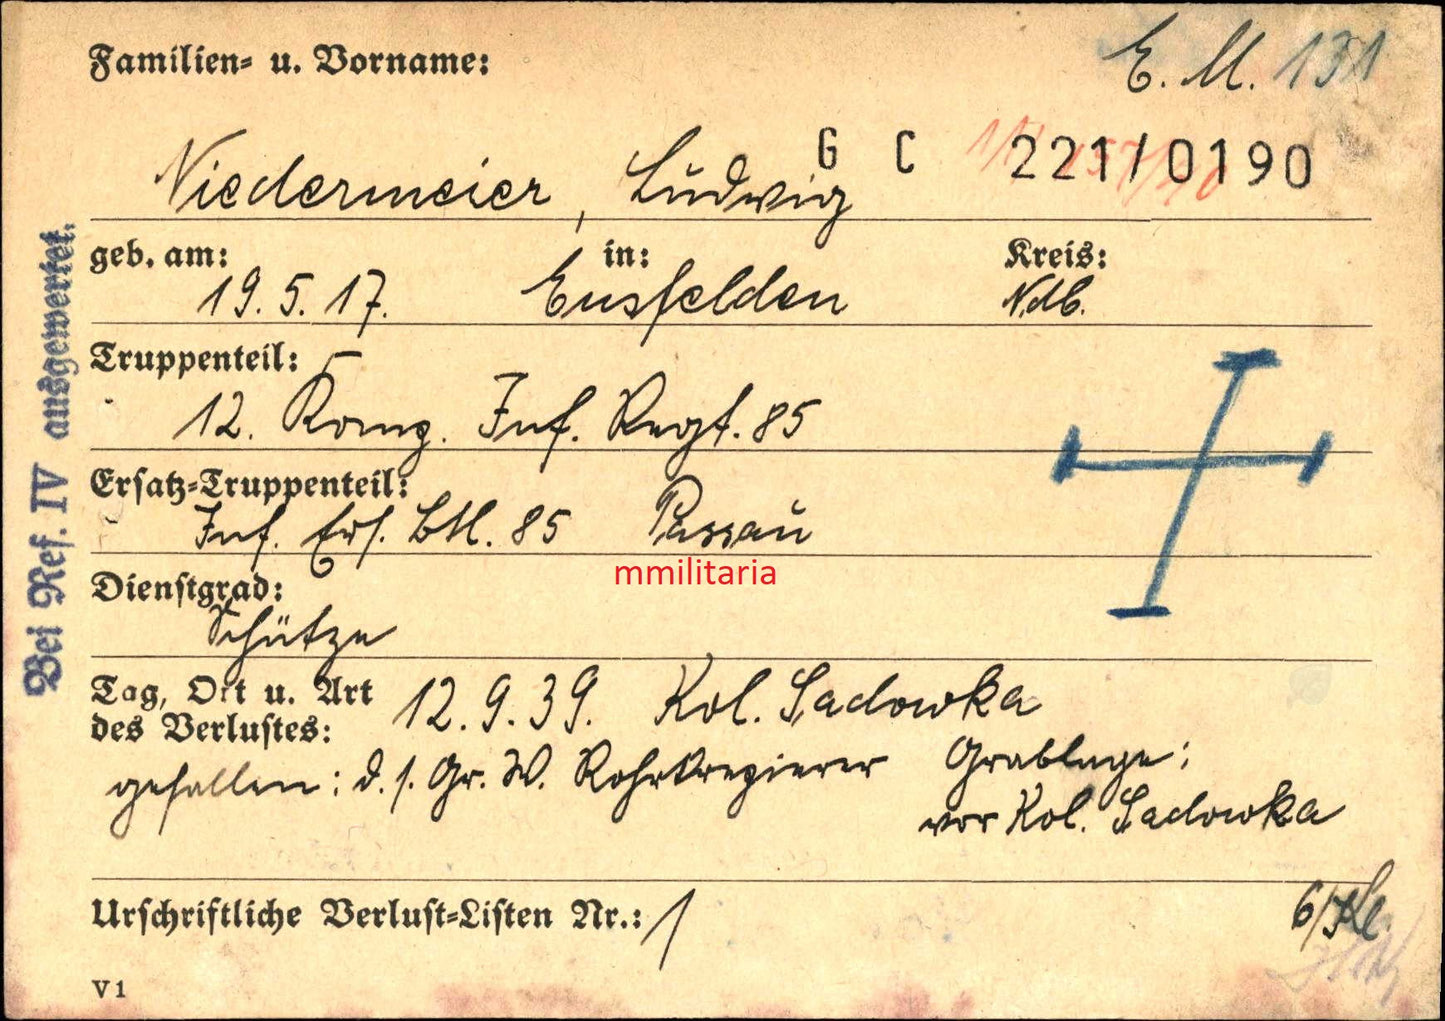 Familien- u. Vorname:
E. M. 131
Niedermeier, Ludwig
G C 221/0190
geb. am: in: Kreis:
19.5.17. Eusfelden Ndb.
Truppenteil:
12. Komp. Inf. Regt. 85
Ersatz-Truppenteil:
Inf. Ers. Btl. 85 Passau
mmilitaria
Dienstgrad:
Schütze
Tag, Ort u. Art 12.9.39. Kol. Sadowka
des Verlustes:
gefallen: d. s. Gr. W. Rohrkrepierer Grablage:
vor Kol. Sadowka
Urschriftliche Verlust-Listen Nr.: 1
V 1
Bei Ref. IV ausgewertet.